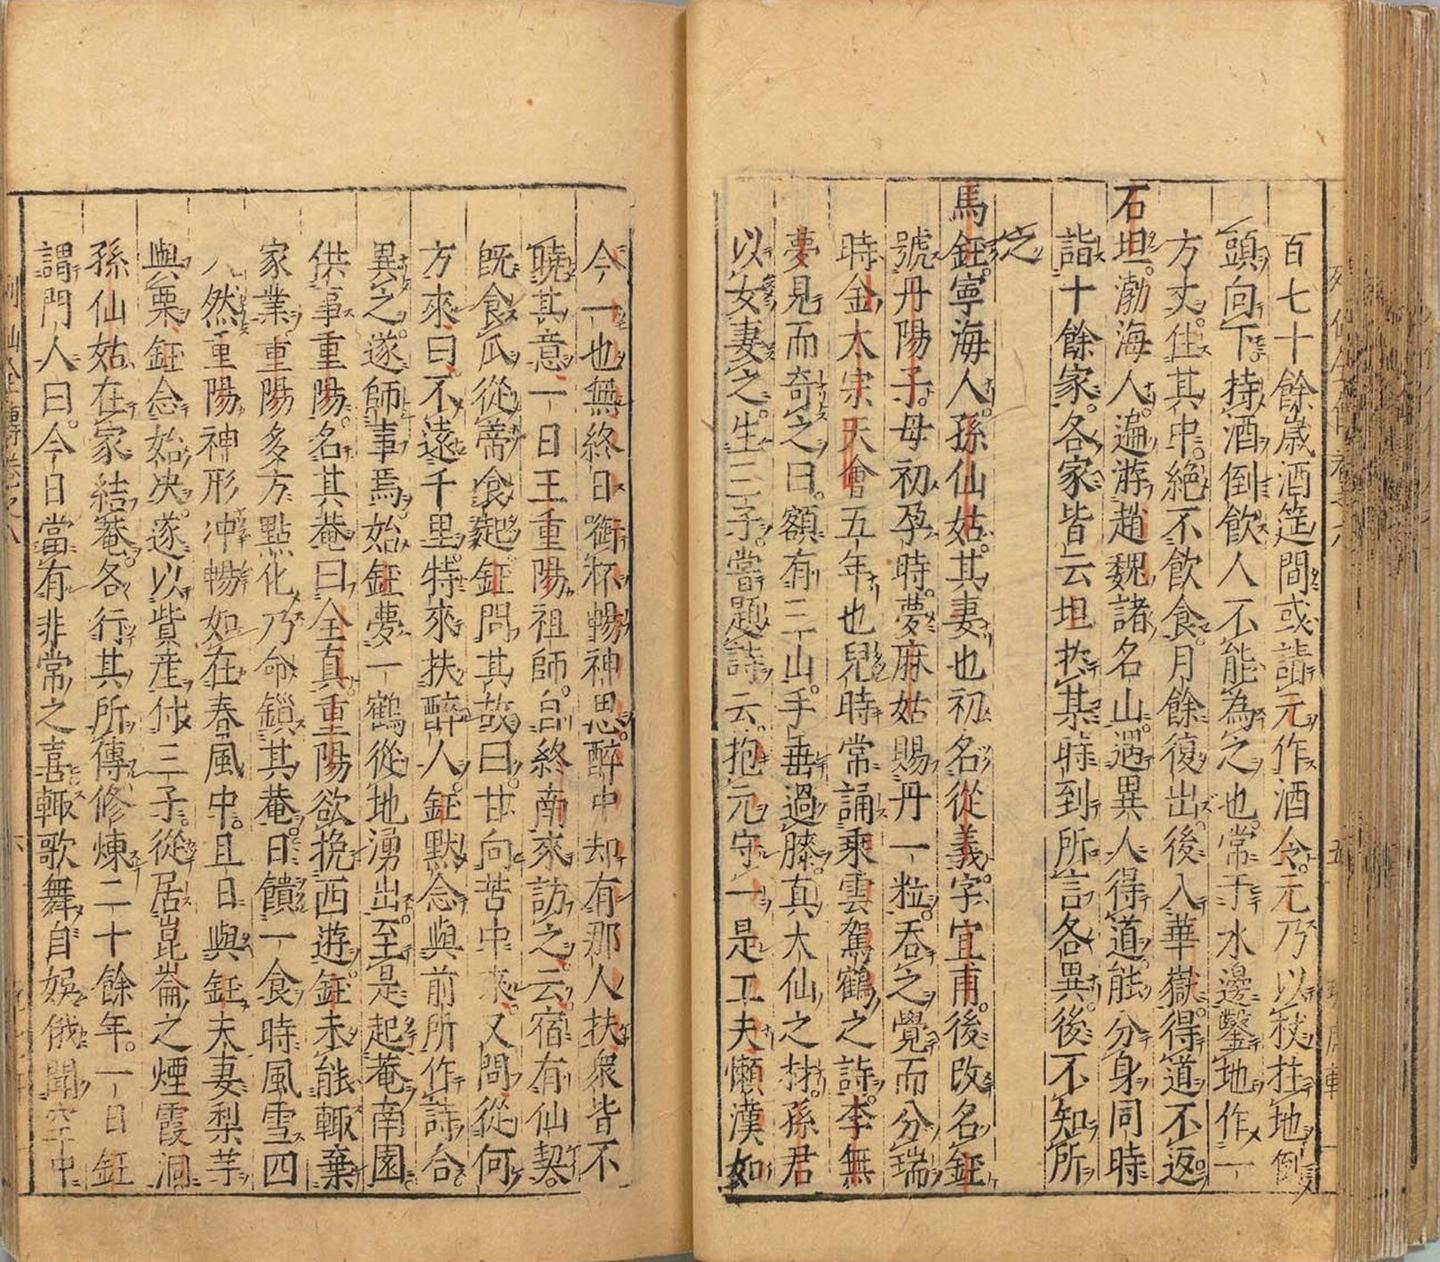 百七十餘歳酒筵間或請元作酒令元乃以杖拄地倒
頭向下持酒倒飲人不能為之也常于水邊鑿地作一
方丈住其中絕不飲食月餘復出後入華嶽得道不返
石坦渤海人遍游趙魏諸名山遇異人得道能分身同時
詣十餘家各家皆云坦于某時到所言各異後不知所
之
馬鈺寧海人孫仙姑其妻也初名從義字宜甫後改名鈺
號丹陽子母初孕時夢麻姑賜丹一粒吞之覺而分瑞
時金太宗天會五年也兒時常誦乘雲駕鶴之詩李無
夢見而奇之曰額有三山手垂過膝真大仙之材孫君
以女妻之生三子嘗題詩云抱元守一是工夫懶漢如
今一也無終日銜杯暢神思醉中却有那人扶衆皆不
曉其意一日王重陽祖師自終南來訪之云宿有仙契
既食瓜從蒂食起鈺問其故曰甘向苦中來又問從何
方來曰不遠千里特來扶醉人鈺默念與前所作詩合
異之遂師事焉始鈺夢一鶴從地湧出至是起菴南園
供事重陽名其菴曰全真重陽欲挽西遊鈺未能輒棄
家業重陽多方點化乃命鎖其菴日饋一食時風雪四
入然重陽神形冲暢如在春風中且日與鈺夫妻梨芋
與栗鈺念始決遂以貲産付三子從居崑崙之煙霞洞
孫仙姑在家結菴各行其所傳修煉二十餘年一日鈺
謂門人曰今日當有非常之喜輒歌舞自娛俄聞空中